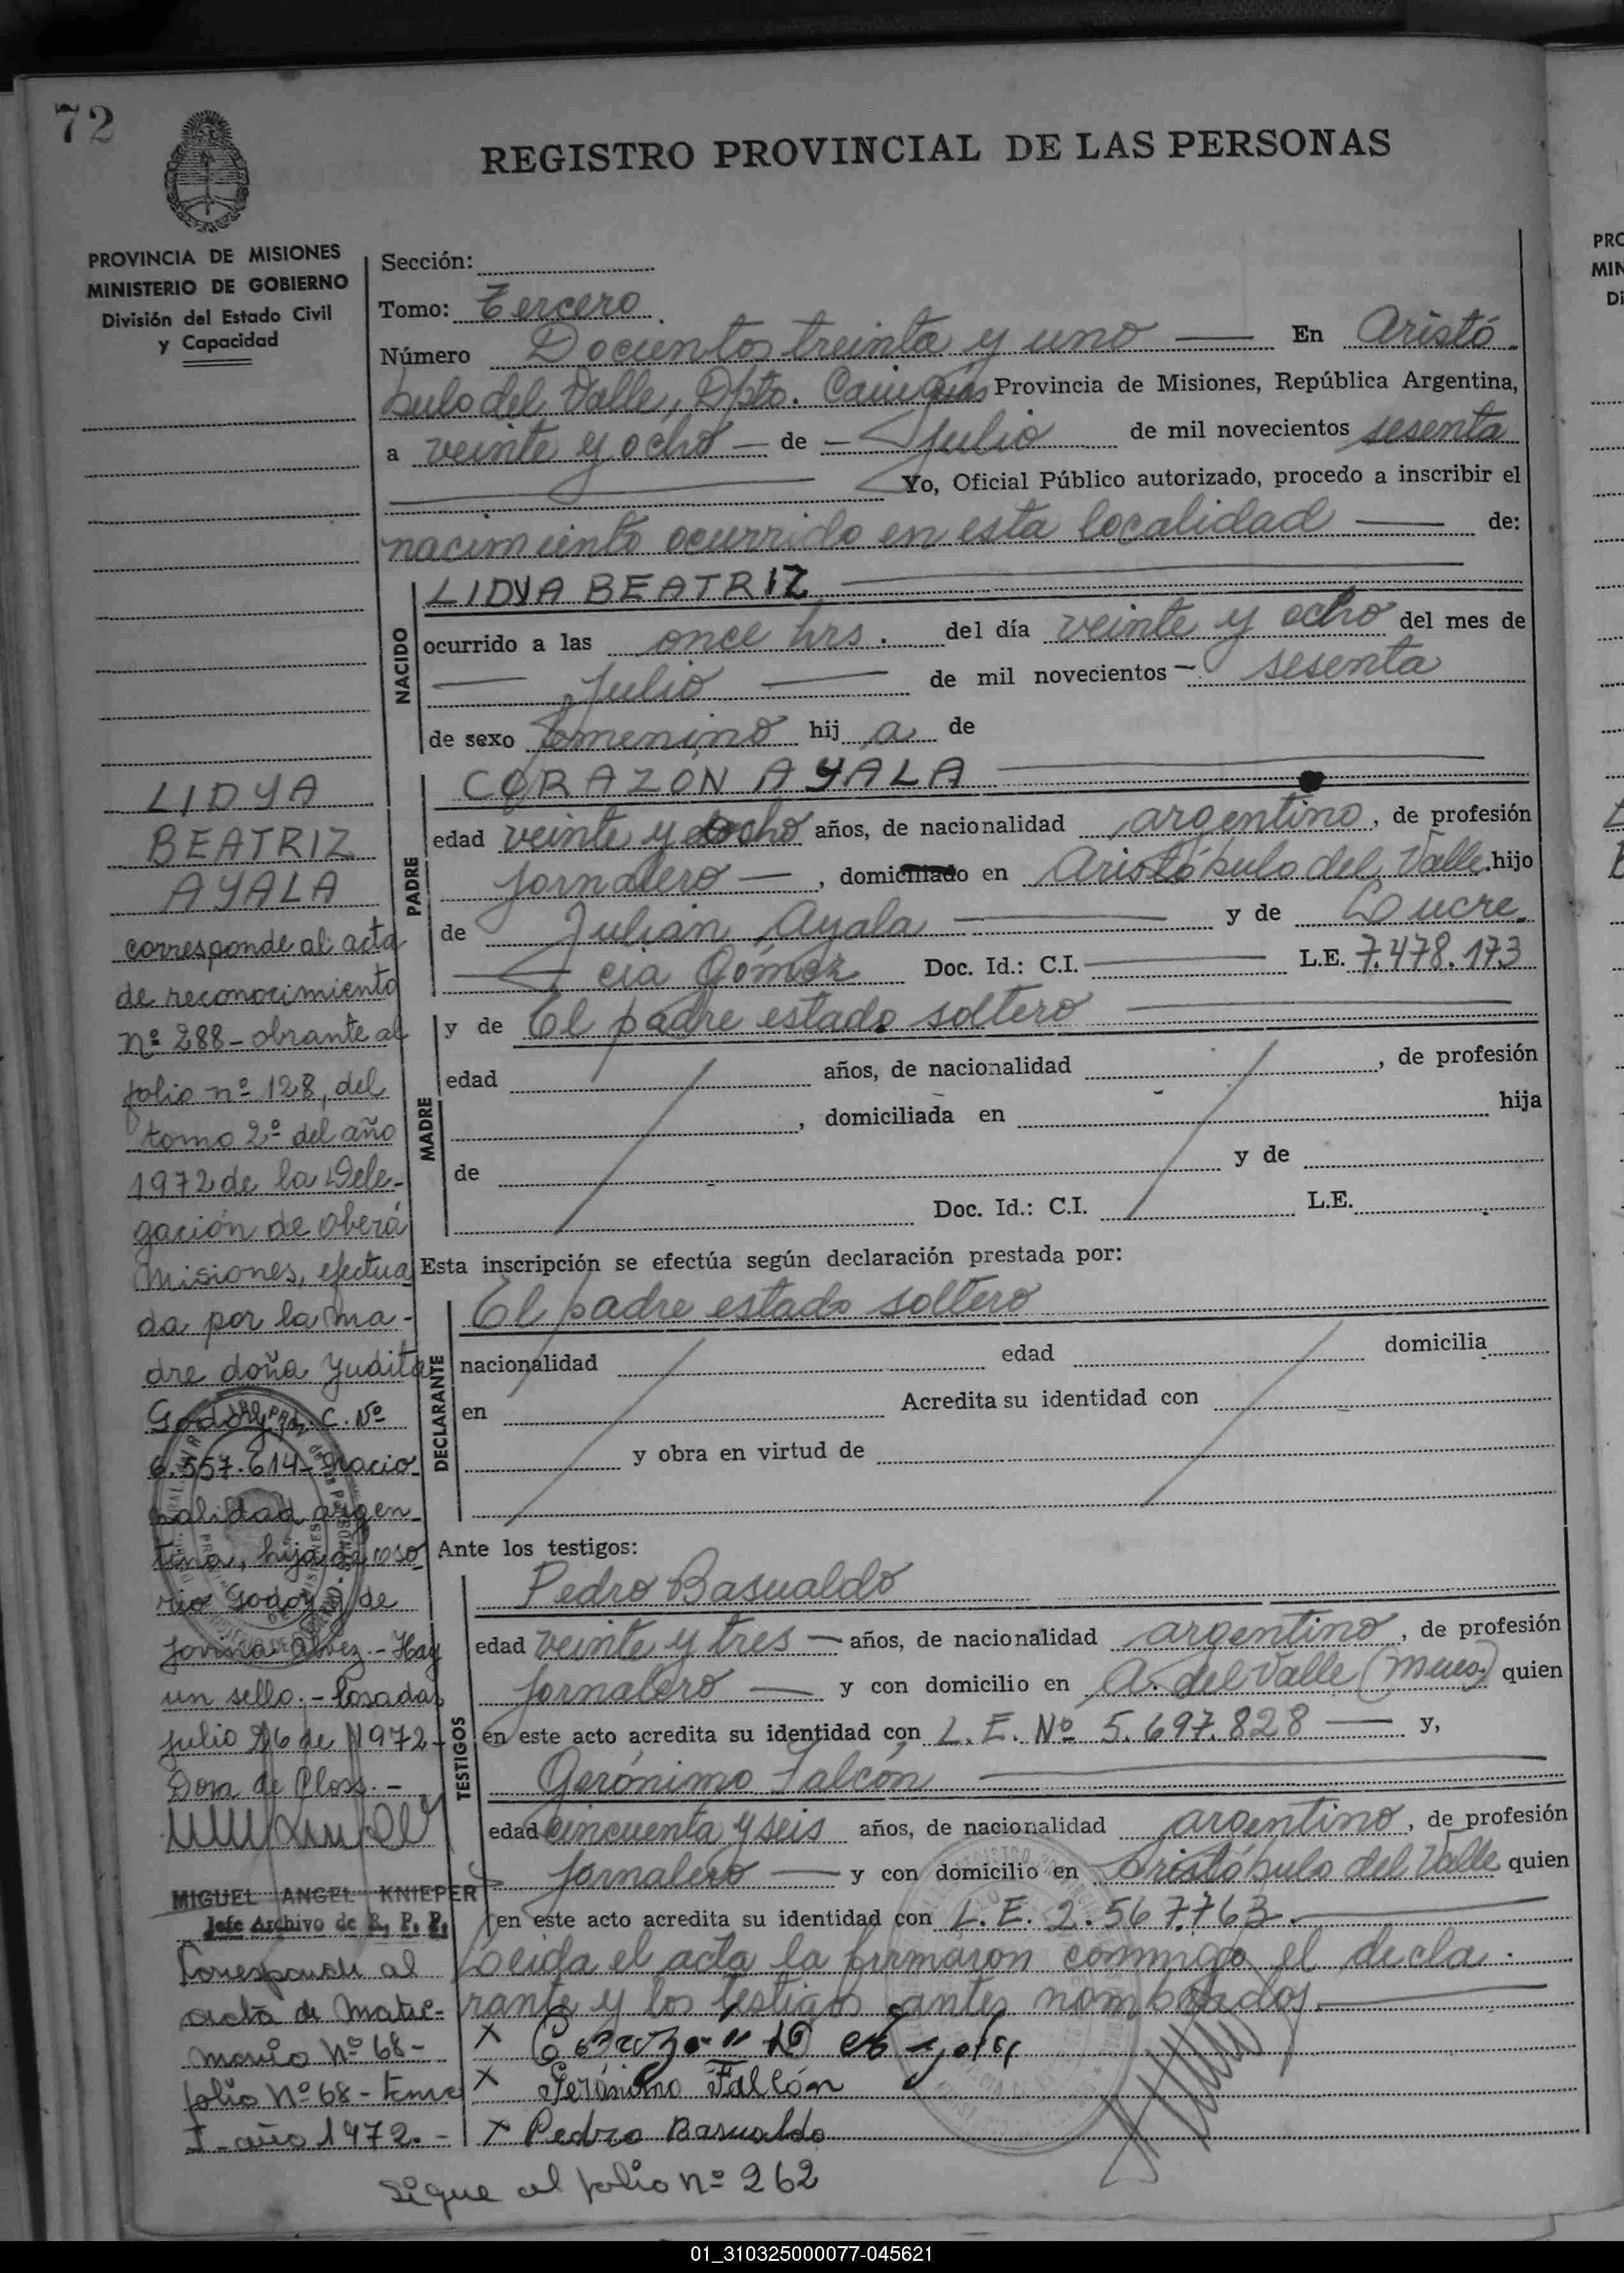 72
REGISTRO PROVINCIAL DE LAS PERSONAS
PROVINCIA DE MISIONES
MINISTERIO DE GOBIERNO
División del Estado Civil
y Capacidad
Sección:
Tomo: Tercero.
Número Docientos treinta y uno — En Aristó-
bulo del Valle, Dpto. Cainguás Provincia de Misiones, República Argentina,
a veinte y ocho — de — Julio de mil novecientos sesenta
Yo, Oficial Público autorizado, procedo a inscribir el
nacimiento ocurrido en esta localidad — de:
NACIDO
LIDYA BEATRIZ
ocurrido a las once hrs. del día veinte y ocho del mes de
— Julio — de mil novecientos — sesenta
de sexo femenino hij a de
PADRE
CORAZÓN AYALA
edad veinte y ocho años, de nacionalidad argentino, de profesión
jornalero —, domiciliado en Aristóbulo del Valle. hijo
de Julián Ayala — y de Lucre-
cia Gómez Doc. Id.: C.I. — L.E. 7.478.173
MADRE
y de El padre estado soltero
edad años, de nacionalidad , de profesión
, domiciliada en hija
de y de
Doc. Id.: C.I. L.E.
Esta inscripción se efectúa según declaración prestada por:
DECLARANTE
El padre estado soltero
nacionalidad edad domicilia
en Acredita su identidad con
y obra en virtud de
Ante los testigos:
TESTIGOS
Pedro Basualdo
edad veinte y tres — años, de nacionalidad argentino, de profesión
jornalero — y con domicilio en A. del Valle (Mnes.) quien
en este acto acredita su identidad con L. E. Nº 5.697.828 — y,
Gerónimo Falcón
edad cincuenta y seis años, de nacionalidad argentino, de profesión
jornalero — y con domicilio en Aristóbulo del Valle quien
en este acto acredita su identidad con L. E. 2.567.763.
Leida el acta la firmaron conmigo el decla-
rante y los testigos antes nombrados.
x Corazon Ayala
x Gerónimo Falcón
x Pedro Basualdo
Sigue al folio nº 262
LIDYA
BEATRIZ
AYALA
corresponde al acta
de reconocimiento
nº 288 - obrante al
folio nº 128, del
tomo 2º del año
1972 de la Dele-
gación de Oberá
Misiones, efectua
da por la ma-
dre doña Yudita
Godoy L. C. Nº
6.557.614 - nacio-
nalidad argen-
tina, hija de
rio Godoy y de
Jovina Alvez. - Hay
un sello. - Posadas
julio 26 de 1972 -
Dora de Closs. -
MIGUEL ANGEL KNIEPER
Jefe Archivo de R. P. P.
Corresponde al
acta de Matri-
monio Nº 68 -
folio Nº 68 - tomo
I - año 1972. -
PRO
MIN
Di
01_310325000077-045621